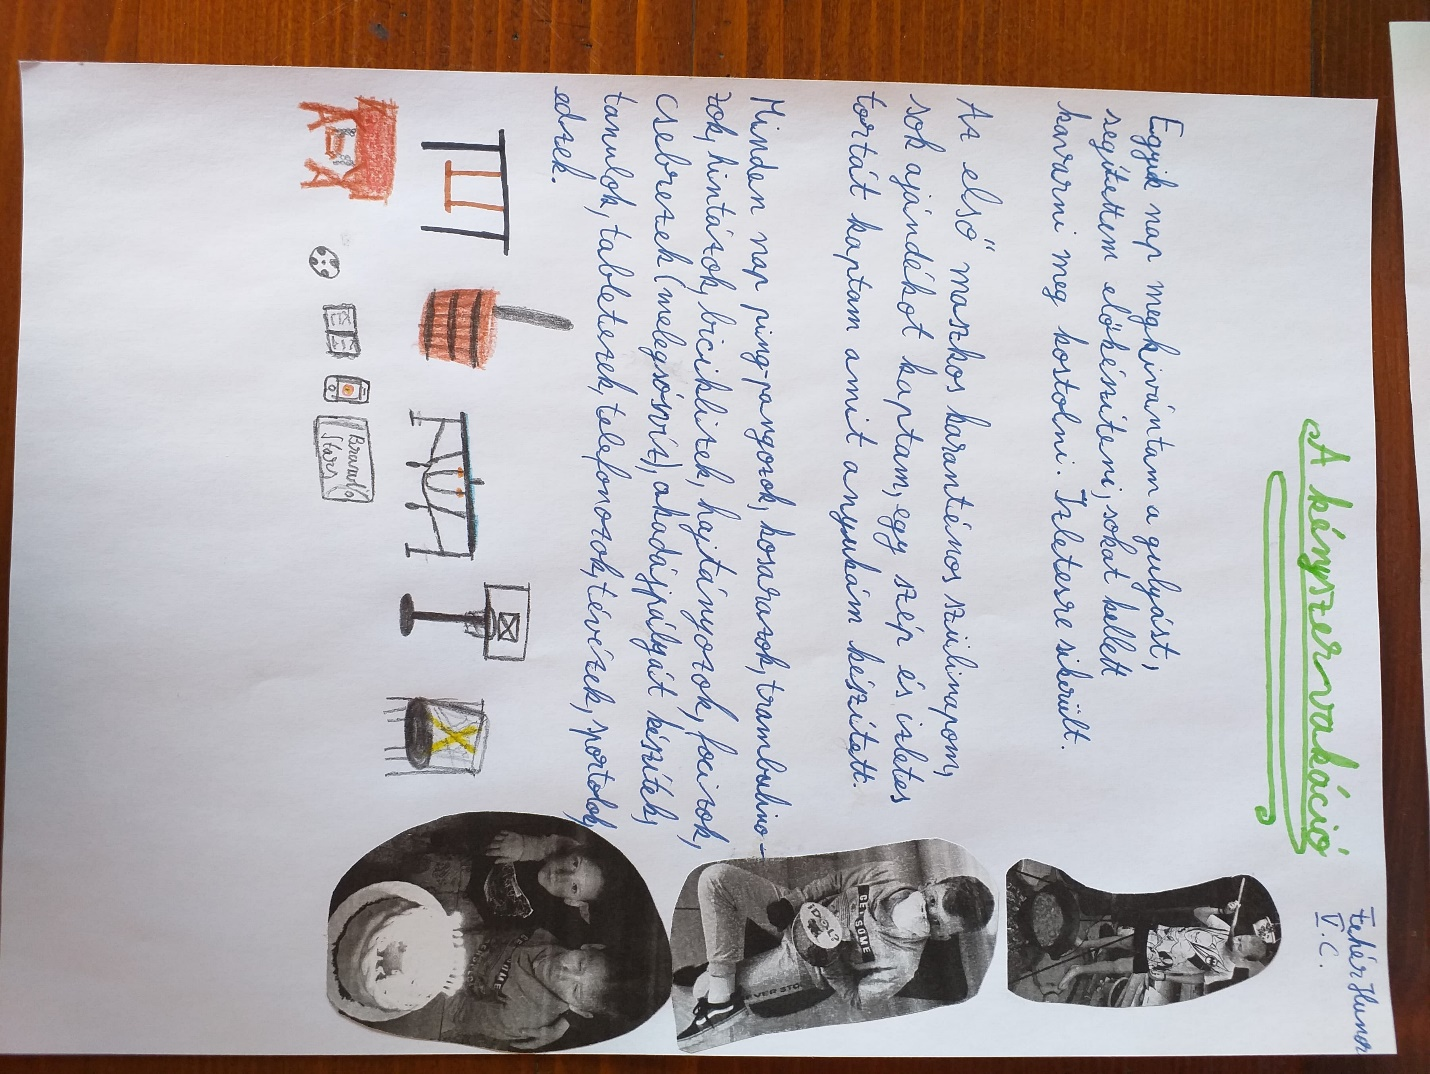 Fehér Hunor
V. C.
A kényszervakáció
Egyik nap megkivántam a gulyást,
segítettem előkészíteni, sokat kellett
kavarni meg kostolni. Izletesre sikerült.
Az első maszkos karanténos szülinapom,
sok ajándékot kaptam, egy szép és izletes
tortát kaptam amit anyukám készített.
Minden nap ping-pongozok, kosarazok, trambulino-
zok, hintázok, biciklizek, hajtányozok, focizok,
csebrezek (meleg sósvíz), akadájpájyát készítek,
tanulok, tabletezek, telefonozok, tévézek, sportolok,
edzek.
GET SOME
IDOL?
EVER STO
Brawl
Stars